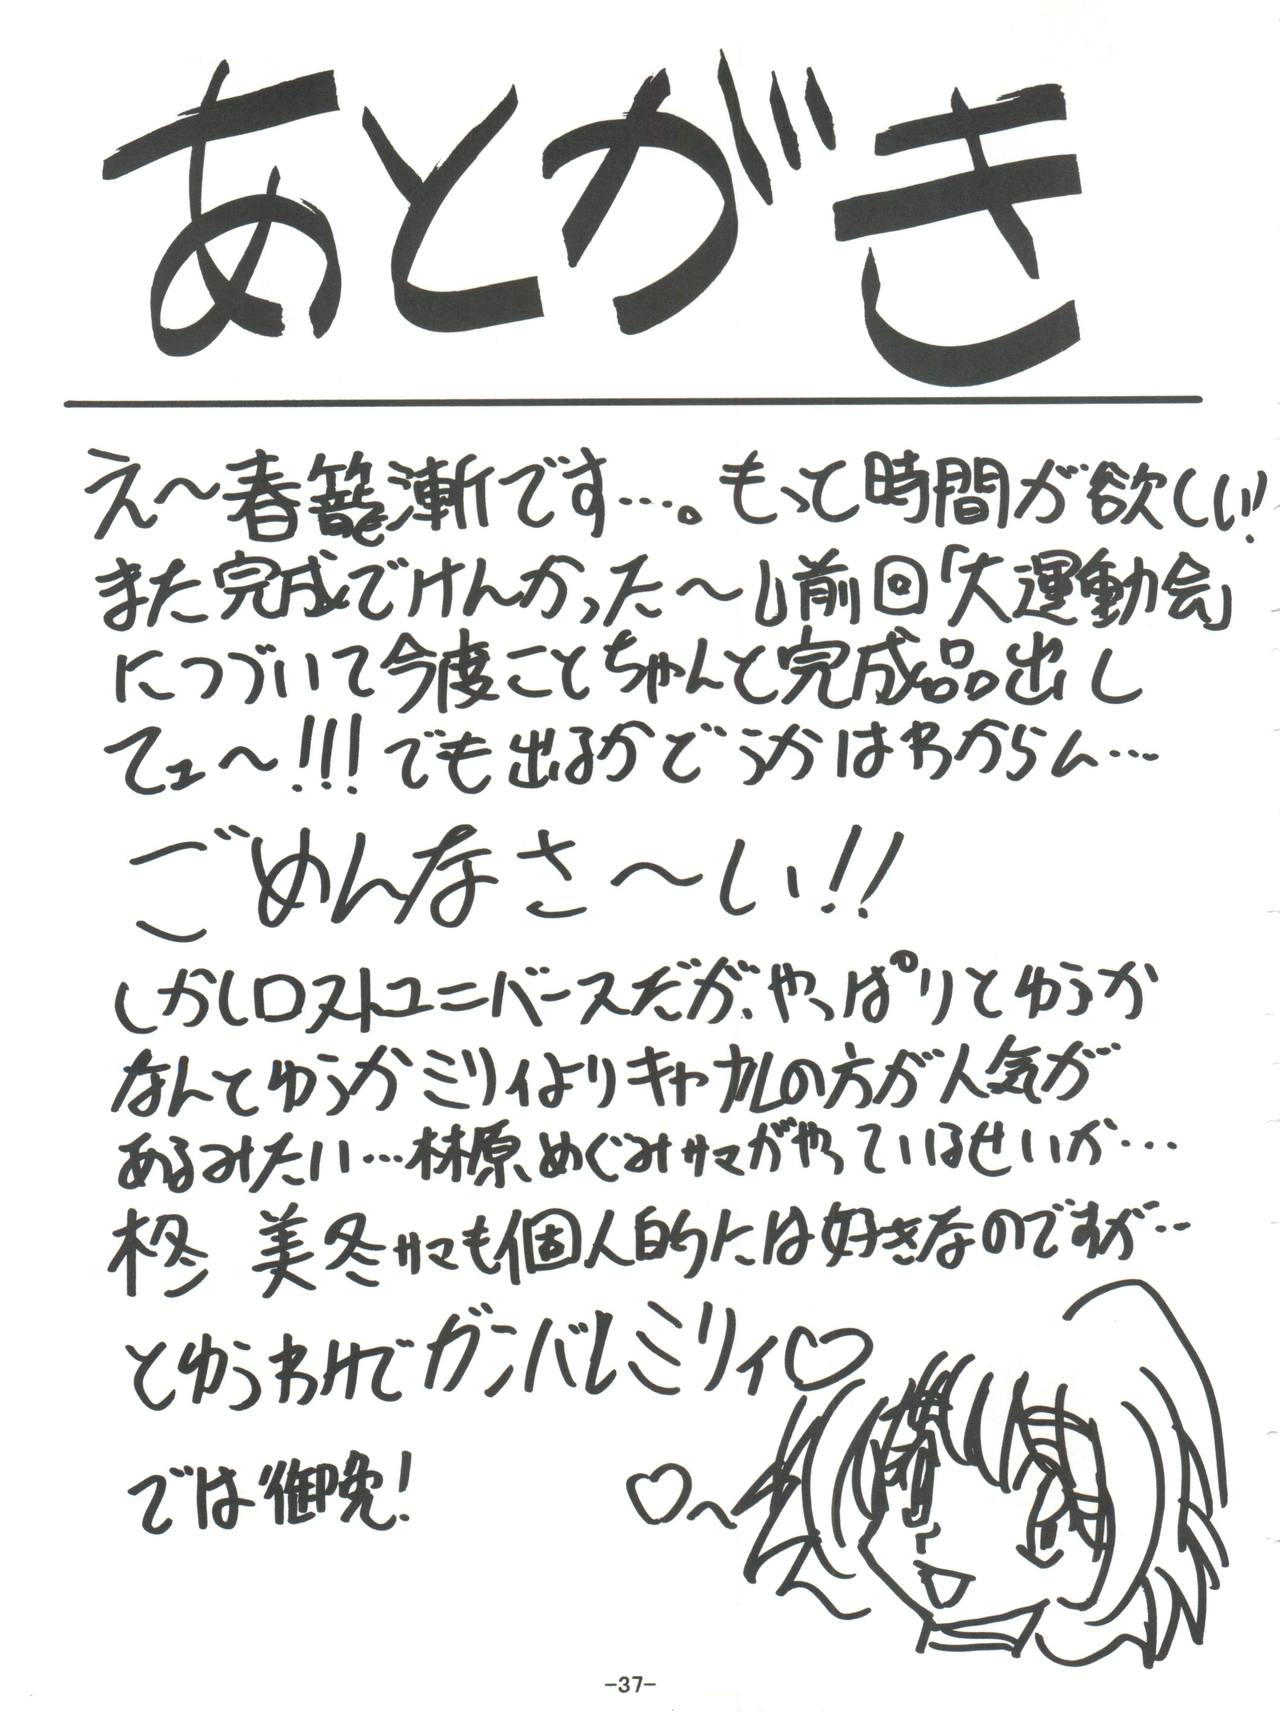 あとがき
え～春籠漸です…。もって時間が欲しい!
また完成でけんかった～し前回「大運動会」
につづいて今度ことちゃんと完成品出し
てェ～!!!でも出るかどうかはわからん…
ごめんなさ～い!!
しかしロストユニバースだが、やっぱりとゆうか
なんとゆうかミリィよりキャナルの方が人気が
あるみたい…林原めぐみサマがやっているせいか…
柊 美冬サマも個人的には好きなのですが…
とゆうわけでガンバレミリィ♡
では御免!
-37-